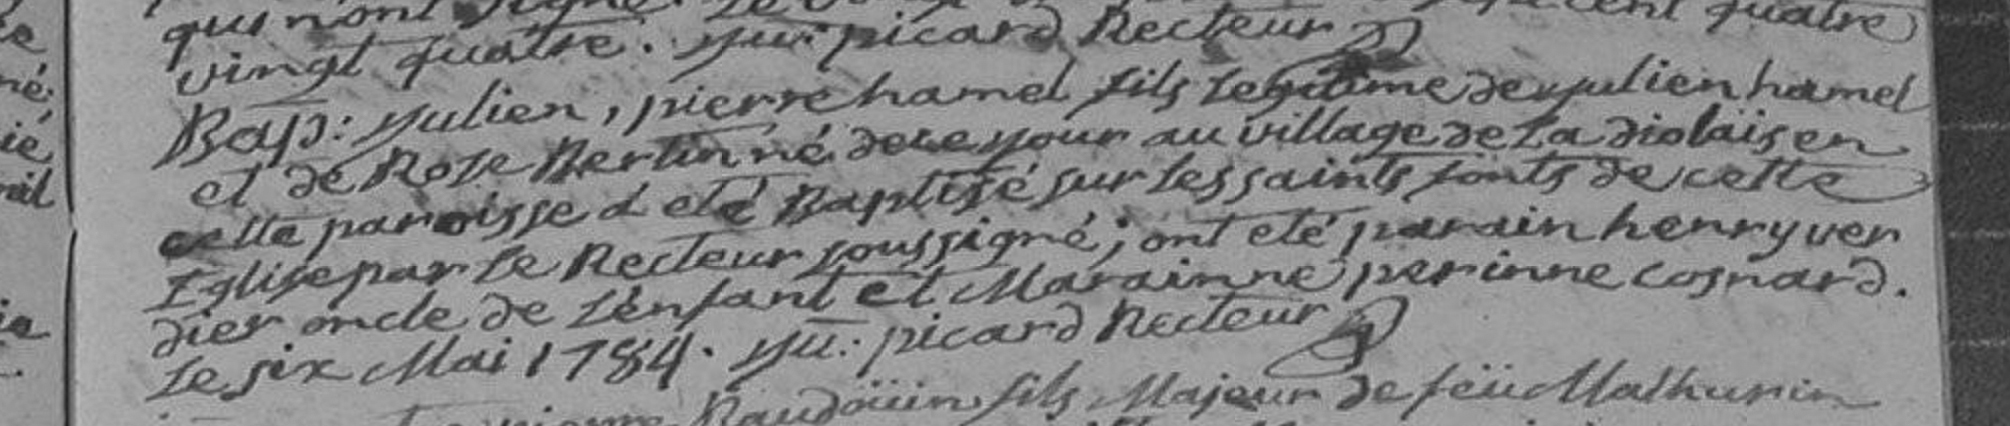 qui n'ont signé. Le cent quatre
vingt quatre. yu: picard Recteur
Bap: yulien, pierre hamel fils Legitime de yulien hamel
et de Roze Bertin né de ce your au village de La diolais en
cette paroisse a eté Baptisé sur les saints fonts de cette
Eglise par Le Recteur soussigné; ont eté parain henry ver
dier oncle de L'enfant et Marainne perinne cosnard.
Le six Mai 1784. yu: picard Recteur
pierre Baudoüin fils Majeur de feüe Mathurin